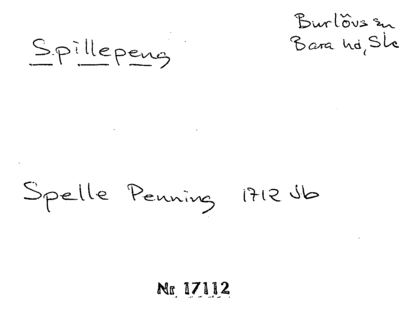 Burlövs sn
Bara hd, Sk
Spillepeng
Spelle Penning 1712 Jb
Nr 17112